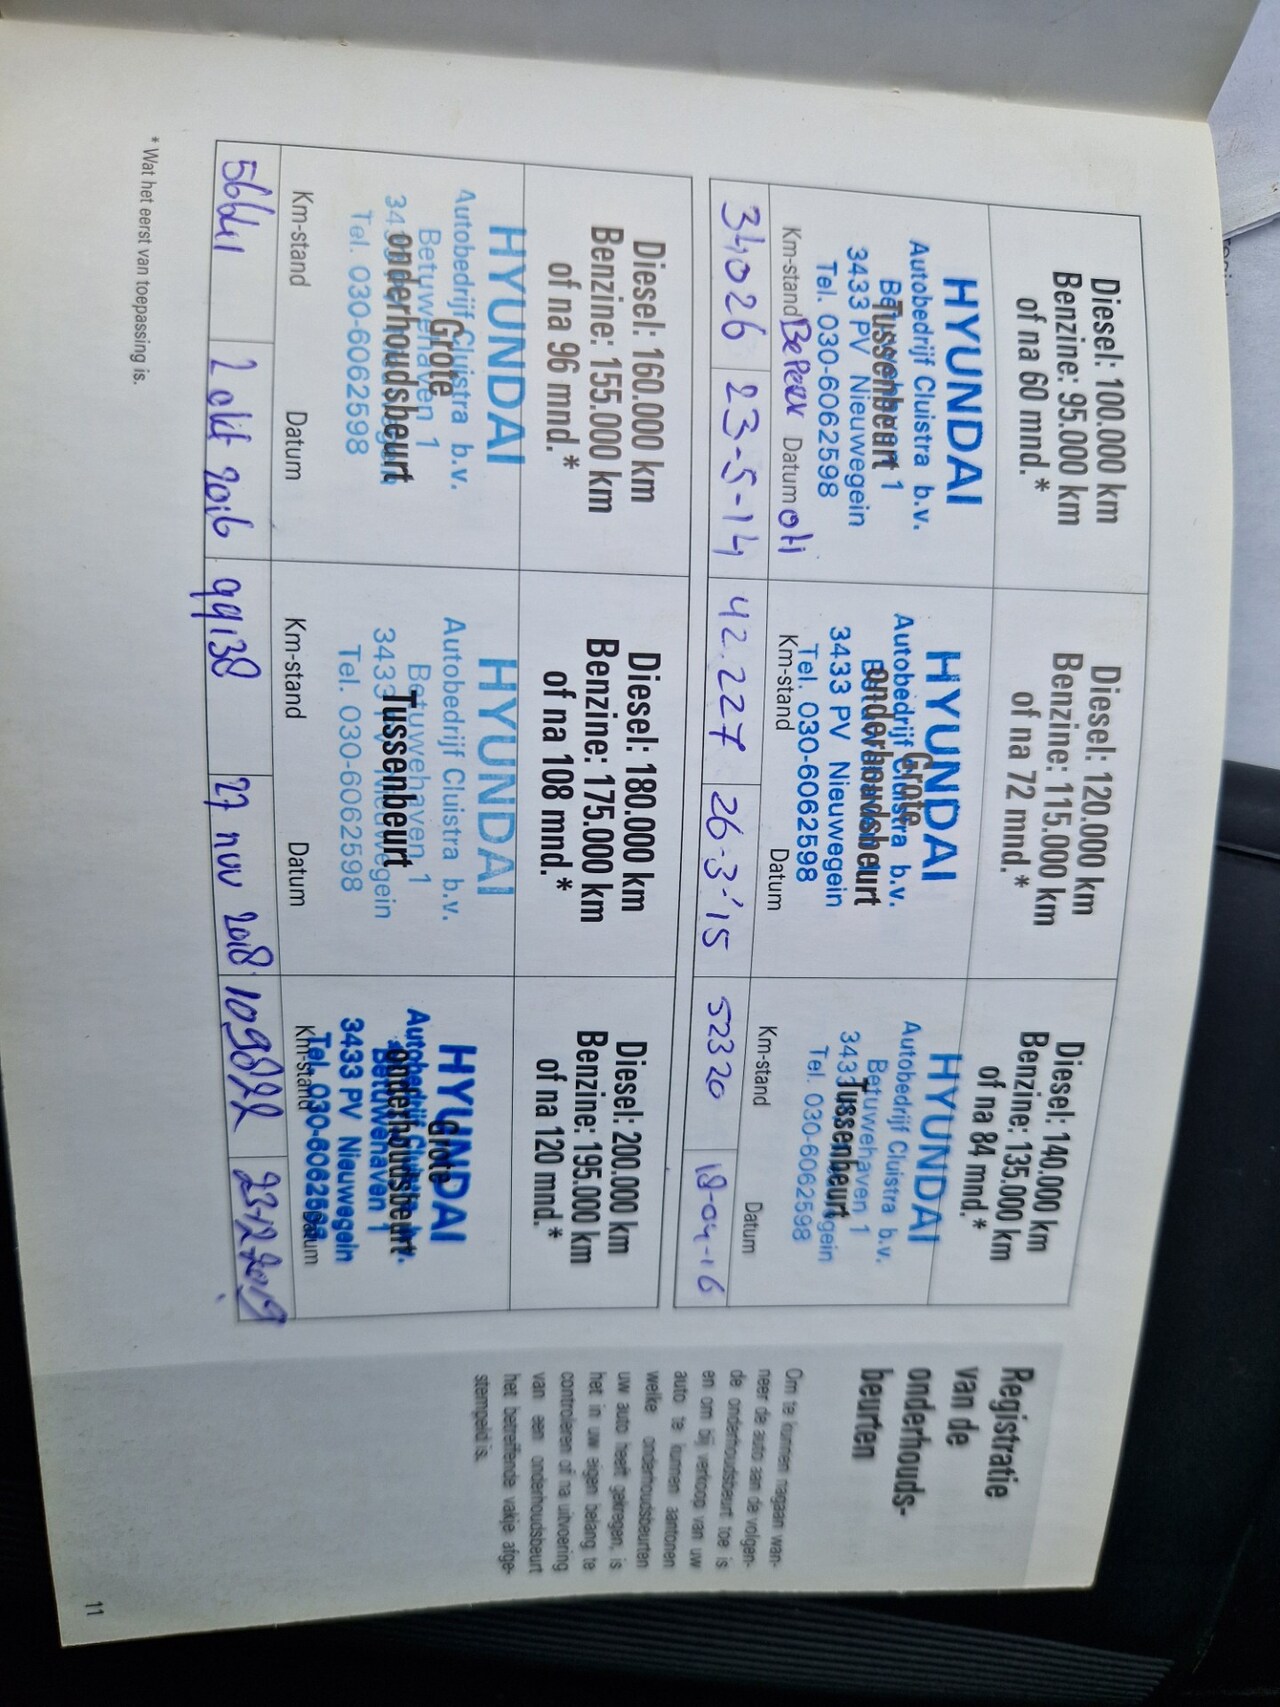 Registratie
van de
onderhouds-
beurten
Om te kunnen nagaan wan-
neer de auto aan de volgen-
de onderhoudsbeurt toe is
en om bij verkoop van uw
auto te kunnen aantonen
welke onderhoudsbeurten
uw auto heeft gekregen, is
het in uw eigen belang te
controleren of na uitvoering
van een onderhoudsbeurt
het betreffende vakje afge-
stempeld is.
Diesel: 100.000 km
Benzine: 95.000 km
of na 60 mnd.*
HYUNDAI
Autobedrijf Cluistra b.v.
Betuwehaven 1
Tussenbeurt
3433 PV Nieuwegein
Tel. 030-6062598
Km-stand Datum
34026 23-5-14
Diesel: 120.000 km
Benzine: 115.000 km
of na 72 mnd.*
HYUNDAI
Grote
Autobedrijf Cluistra b.v.
onderhoudsbeurt
Betuwehaven 1
3433 PV Nieuwegein
Tel. 030-6062598
Km-stand Datum
42.227 26-3-'15
Diesel: 140.000 km
Benzine: 135.000 km
of na 84 mnd.*
HYUNDAI
Autobedrijf Cluistra b.v.
Betuwehaven 1
Tussenbeurt
3433 PV Nieuwegein
Tel. 030-6062598
Km-stand Datum
52320 18-04-16
Diesel: 160.000 km
Benzine: 155.000 km
of na 96 mnd.*
HYUNDAI
Autobedrijf Cluistra b.v.
Grote
Betuwehaven 1
onderhoudsbeurt
3433 PV Nieuwegein
Tel. 030-6062598
Km-stand Datum
56641 2 okt 2016
Diesel: 180.000 km
Benzine: 175.000 km
of na 108 mnd.*
HYUNDAI
Autobedrijf Cluistra b.v.
Betuwehaven 1
Tussenbeurt
3433 PV Nieuwegein
Tel. 030-6062598
Km-stand Datum
99138 27 nov 2018
Diesel: 200.000 km
Benzine: 195.000 km
of na 120 mnd.*
HYUNDAI
Grote
Autobedrijf Cluistra b.v.
onderhoudsbeurt
Betuwehaven 1
3433 PV Nieuwegein
Tel. 030-6062598
Km-stand Datum
109822 23-12-2019
* Wat het eerst van toepassing is.
11